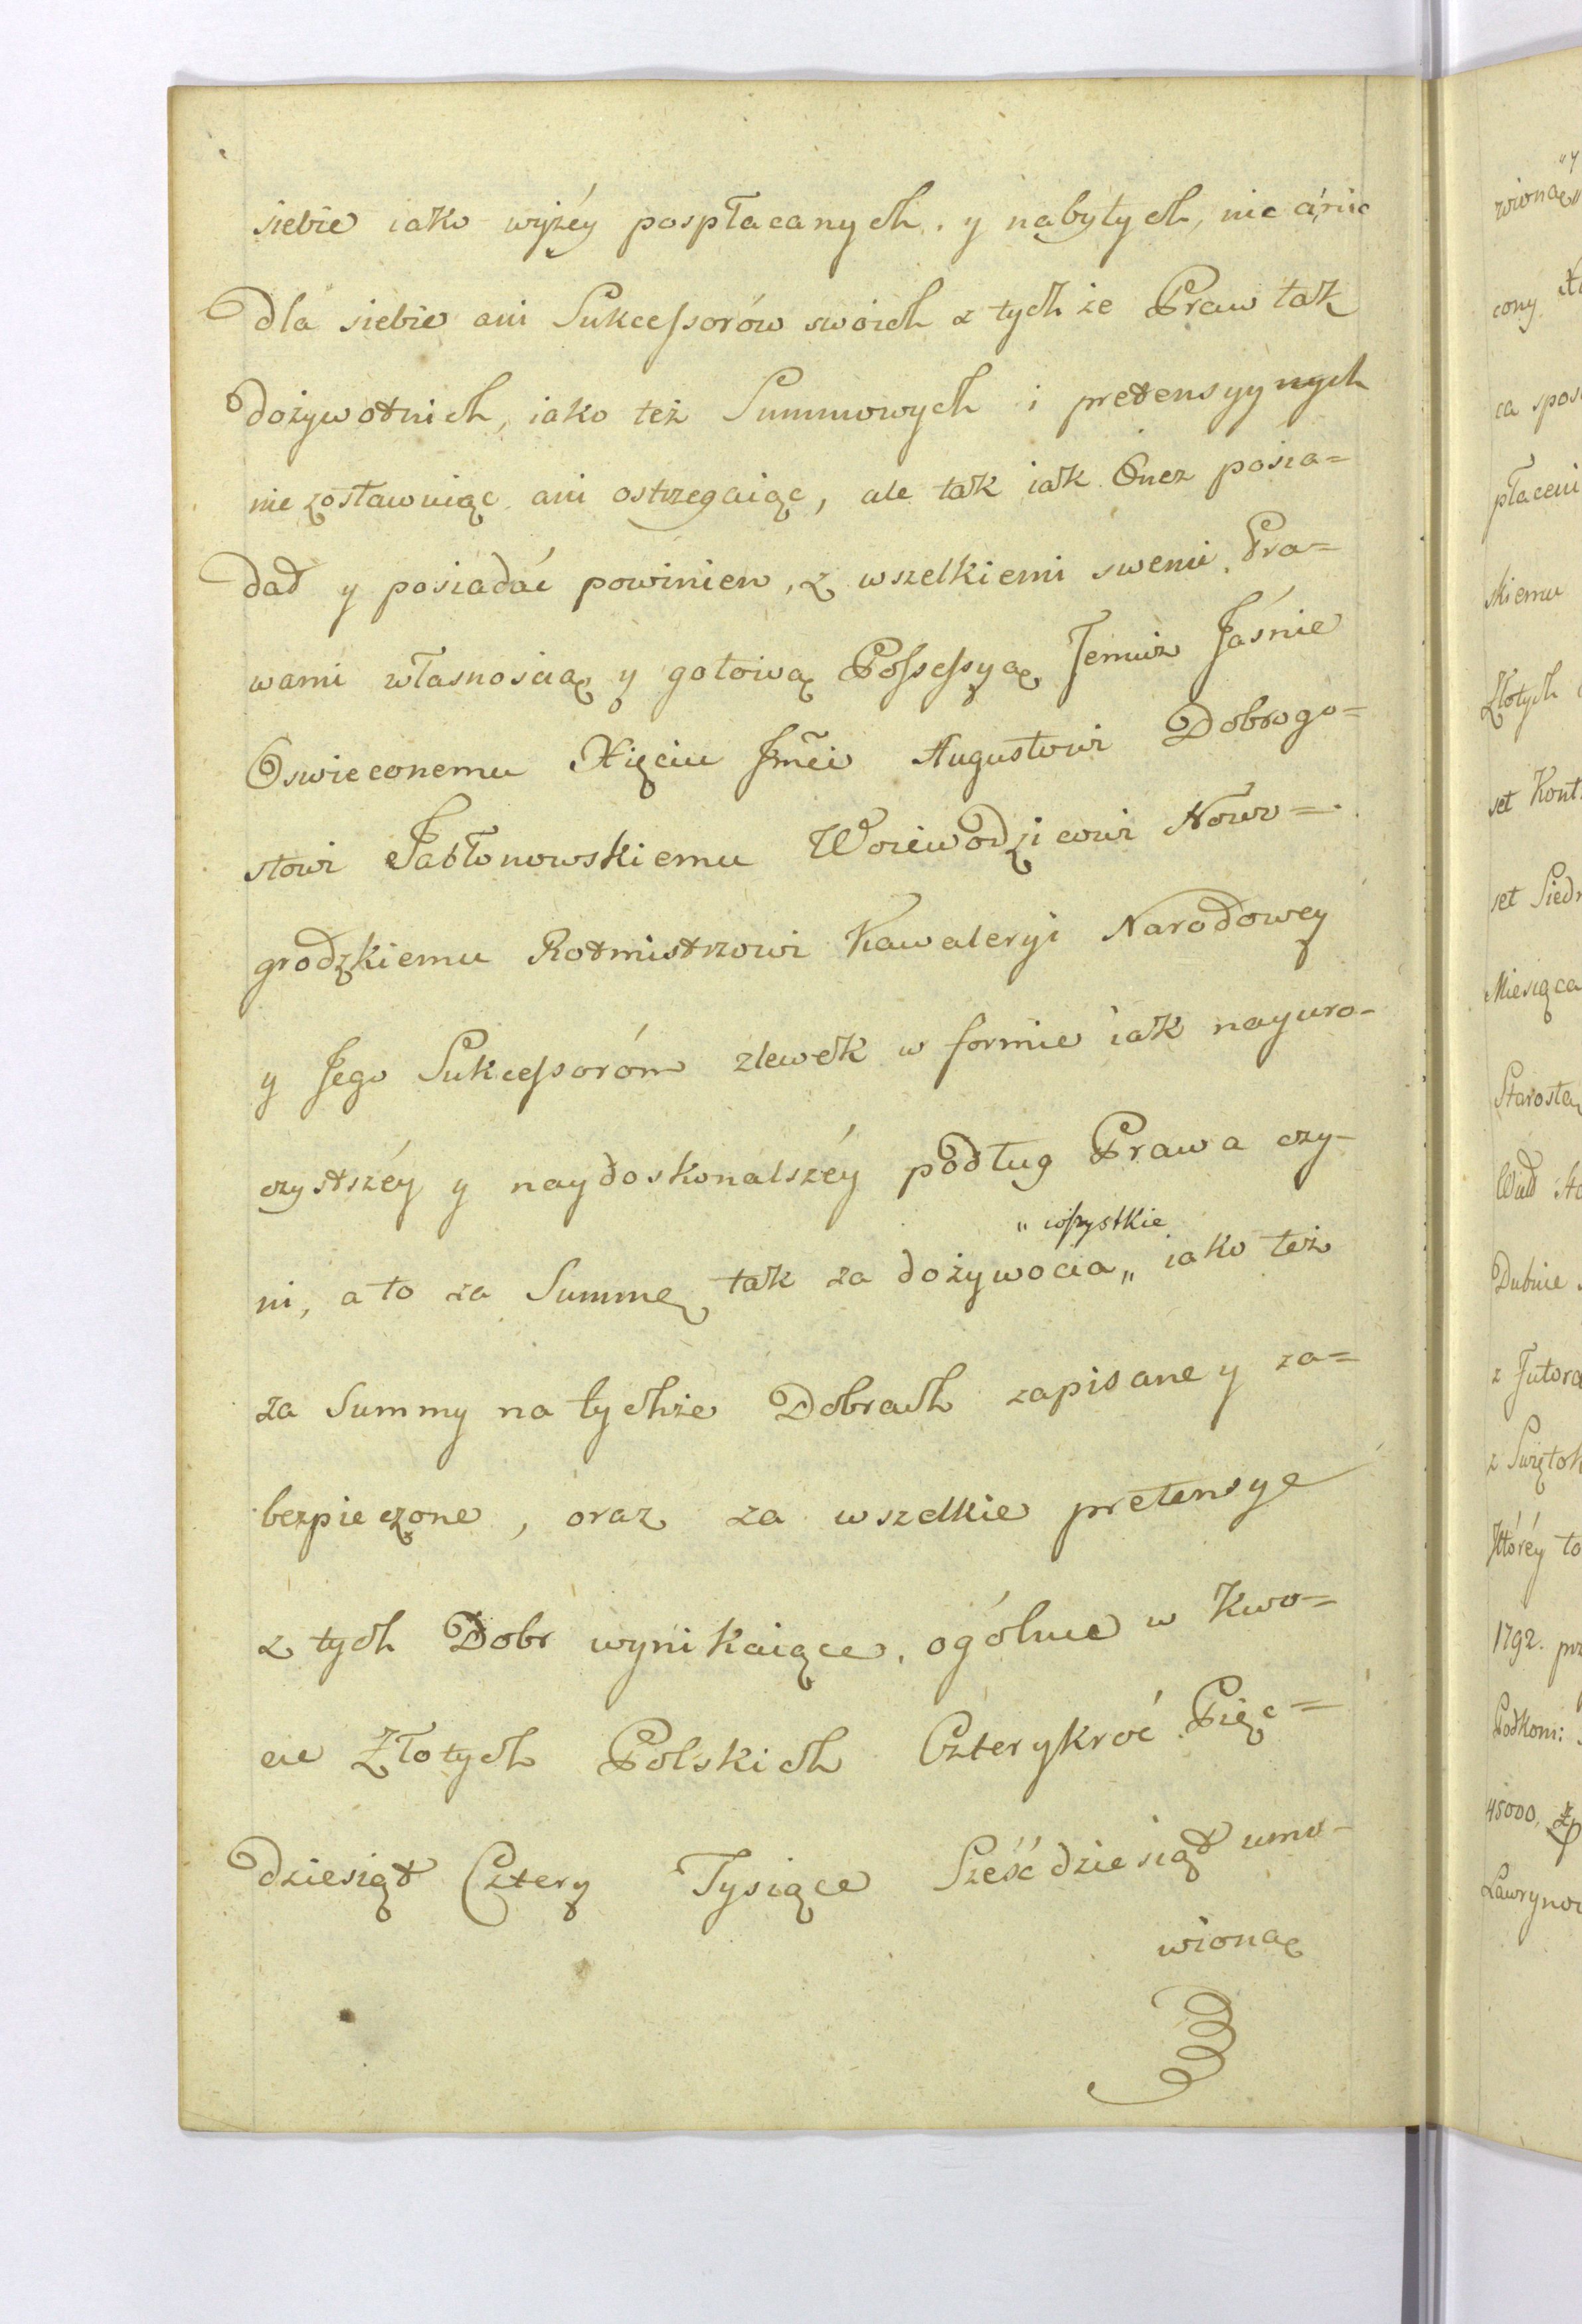 siebie iako wyżéy pospłacanych. y nabytych, nic a nic
dla siebie ani Sukcessorów swoich z tychże Praw tak
dożywotnich, iako też Summowych i pretensyynych
nie zostawuiąc ani ostrzegaiąc, ale tak iak Onez posia=
dał y posiadać powinien, z wszelkiemi swemi Pra=
wami własnoscią y gotową Possessyą Jemuż Jaśnie
Oswieconemu Xięciu Jmci Augustowi Dobrogo=
stowi Jabłonowskiemu Woiewodzicowi Nowo=
grodzkiemu Rotmistrzowi Kawaleryi Narodowey
y Jego Sukcessoróm zlewek w formie iak nayuro-
czystszéy y naydoskonalszéy podług Prawa czy-
" wszystkie
ni, a to za Summę tak za dożywocia „ iako też
za Summy na tychże Dobrach zapisane y za=
bezpieczone, oraz za wszelkie pretensye
z tych Dobr wynikaiące, ogólnie w Kwo=
cie Złotych Polskich Czterykroć Pięć=
dziesiąt Cztery Tysiące Sześćdziesiąt umo-
wioną
wioną „
cony
ca
płaceni
skiemu
Złotych
set Kont
set Siedm
Miesiąca
Starostą
Wład
Dubnie
z Jutora
z Swiętok
Któréy to
1792.
Podkom:
45000,
Lawryno